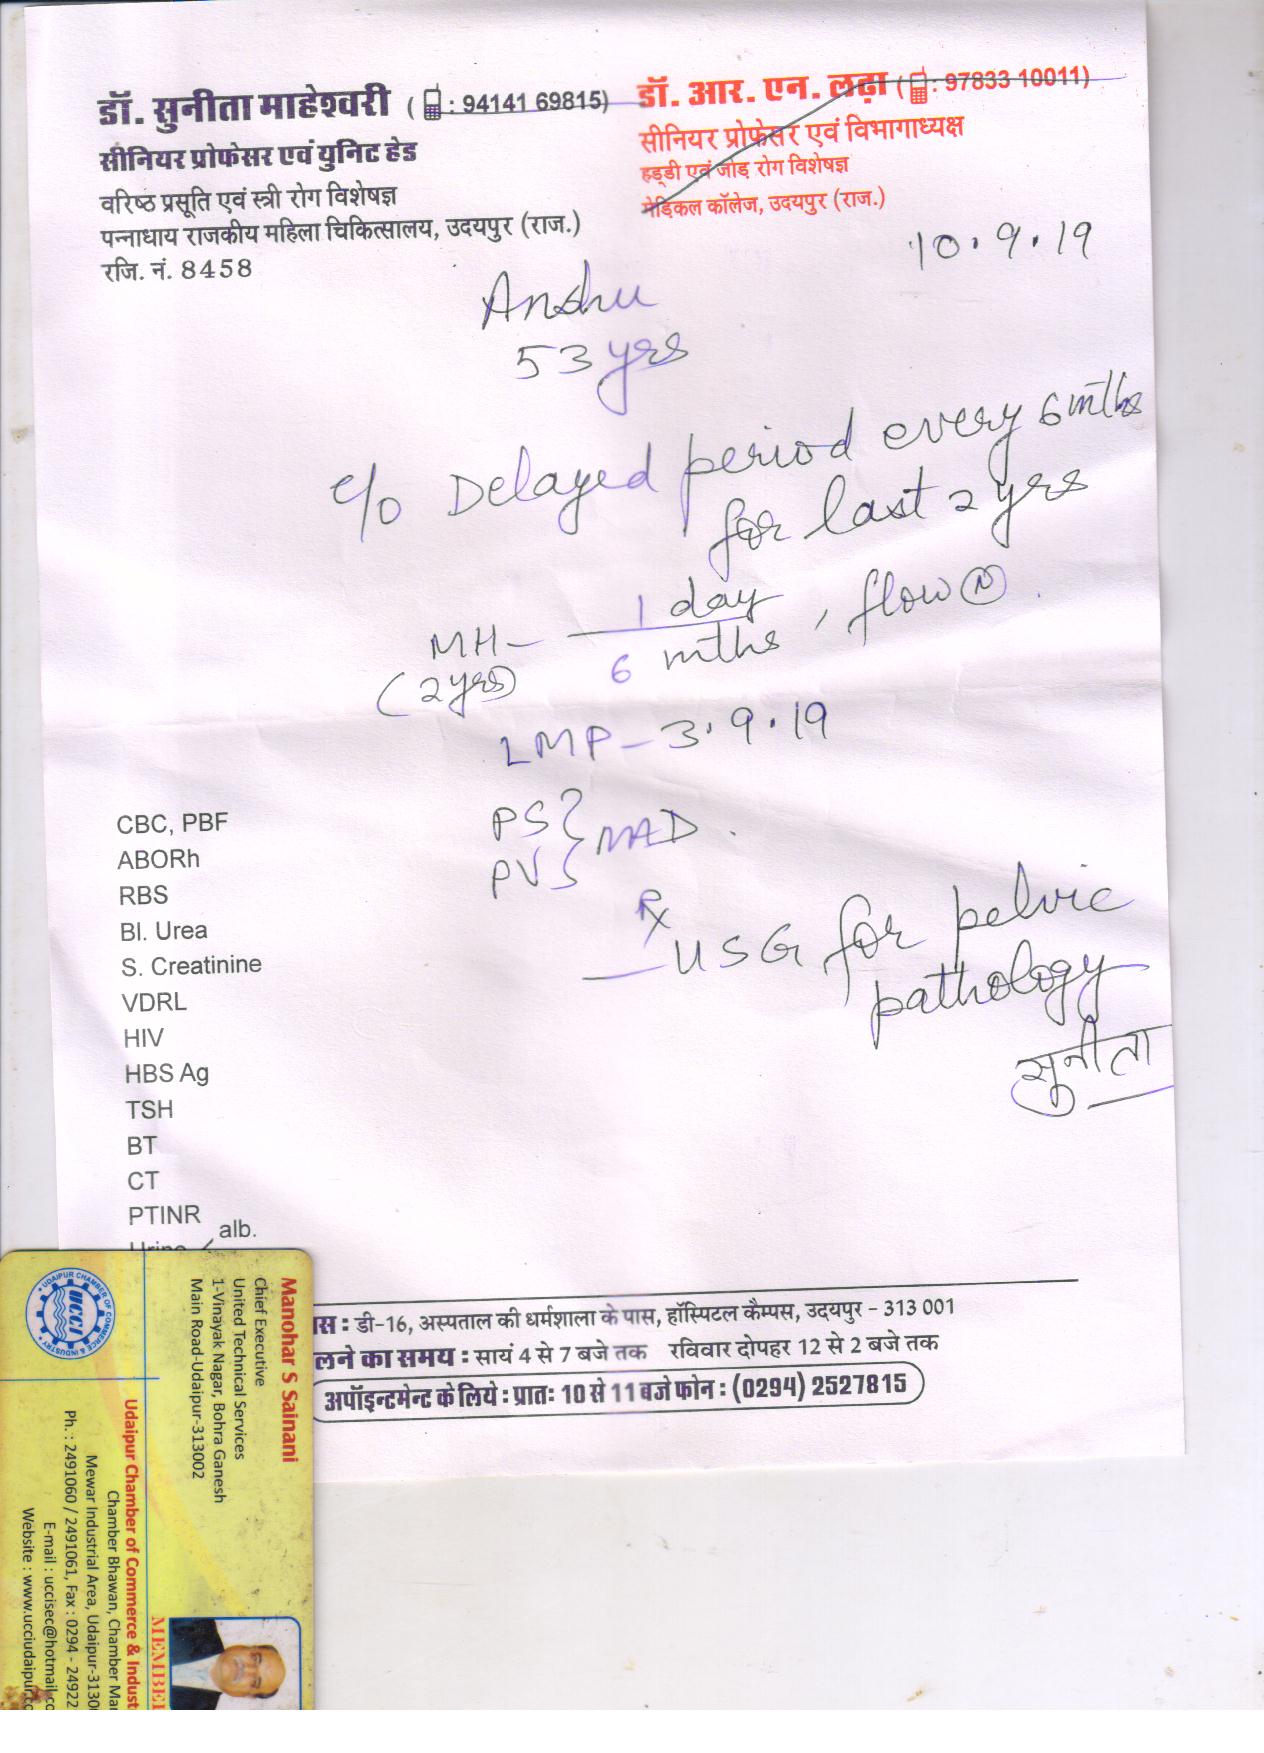 डॉ. सुनीता माहेश्वरी ( : 94141 69815)
सीनियर प्रोफेसर एवं युनिट हेड
वरिष्ठ प्रसूति एवं स्त्री रोग विशेषज्ञ
पन्नाधाय राजकीय महिला चिकित्सालय, उदयपुर (राज.)
रजि. नं. 8458
डॉ. आर. एन. लढ़ा ( : 97833 10011)
सीनियर प्रोफेसर एवं विभागाध्यक्ष
हड्डी एवं जोड़ रोग विशेषज्ञ
मेडिकल कॉलेज, उदयपुर (राज.)
10.9.19
Anshu
53 yrs
c/o Delayed period every 6 mths
for last 2 yrs
MH - 1 day / 6 mths, flow (N).
(2 yrs)
LMP - 3.9.19
PS } NAD.
PV }
Rx
- USG for pelvic
pathology
सुनीता
CBC, PBF
ABORh
RBS
Bl. Urea
S. Creatinine
VDRL
HIV
HBS Ag
TSH
BT
CT
PTINR
alb.
Urine
स : डी-16, अस्पताल की धर्मशाला के पास, हॉस्पिटल कैम्पस, उदयपुर - 313 001
लने का समय : सायं 4 से 7 बजे तक रविवार दोपहर 12 से 2 बजे तक
अपॉइन्टमेन्ट के लिये : प्रातः 10 से 11 बजे फोन : (0294) 2527815
Manohar S Sainani
Chief Executive
United Technical Services
1-Vinayak Nagar, Bohra Ganesh
Main Road-Udaipur-313002
UDAIPUR CHAMBER OF COMMERCE & INDUSTRY
UCCI
MEMBER
Udaipur Chamber of Commerce & Indust
Chamber Bhawan, Chamber Mar
Mewar Industrial Area, Udaipur-3130
Ph. : 2491060 / 2491061, Fax : 0294 - 24922
E-mail : uccisec@hotmail.co
Website : www.ucciudaipur.co